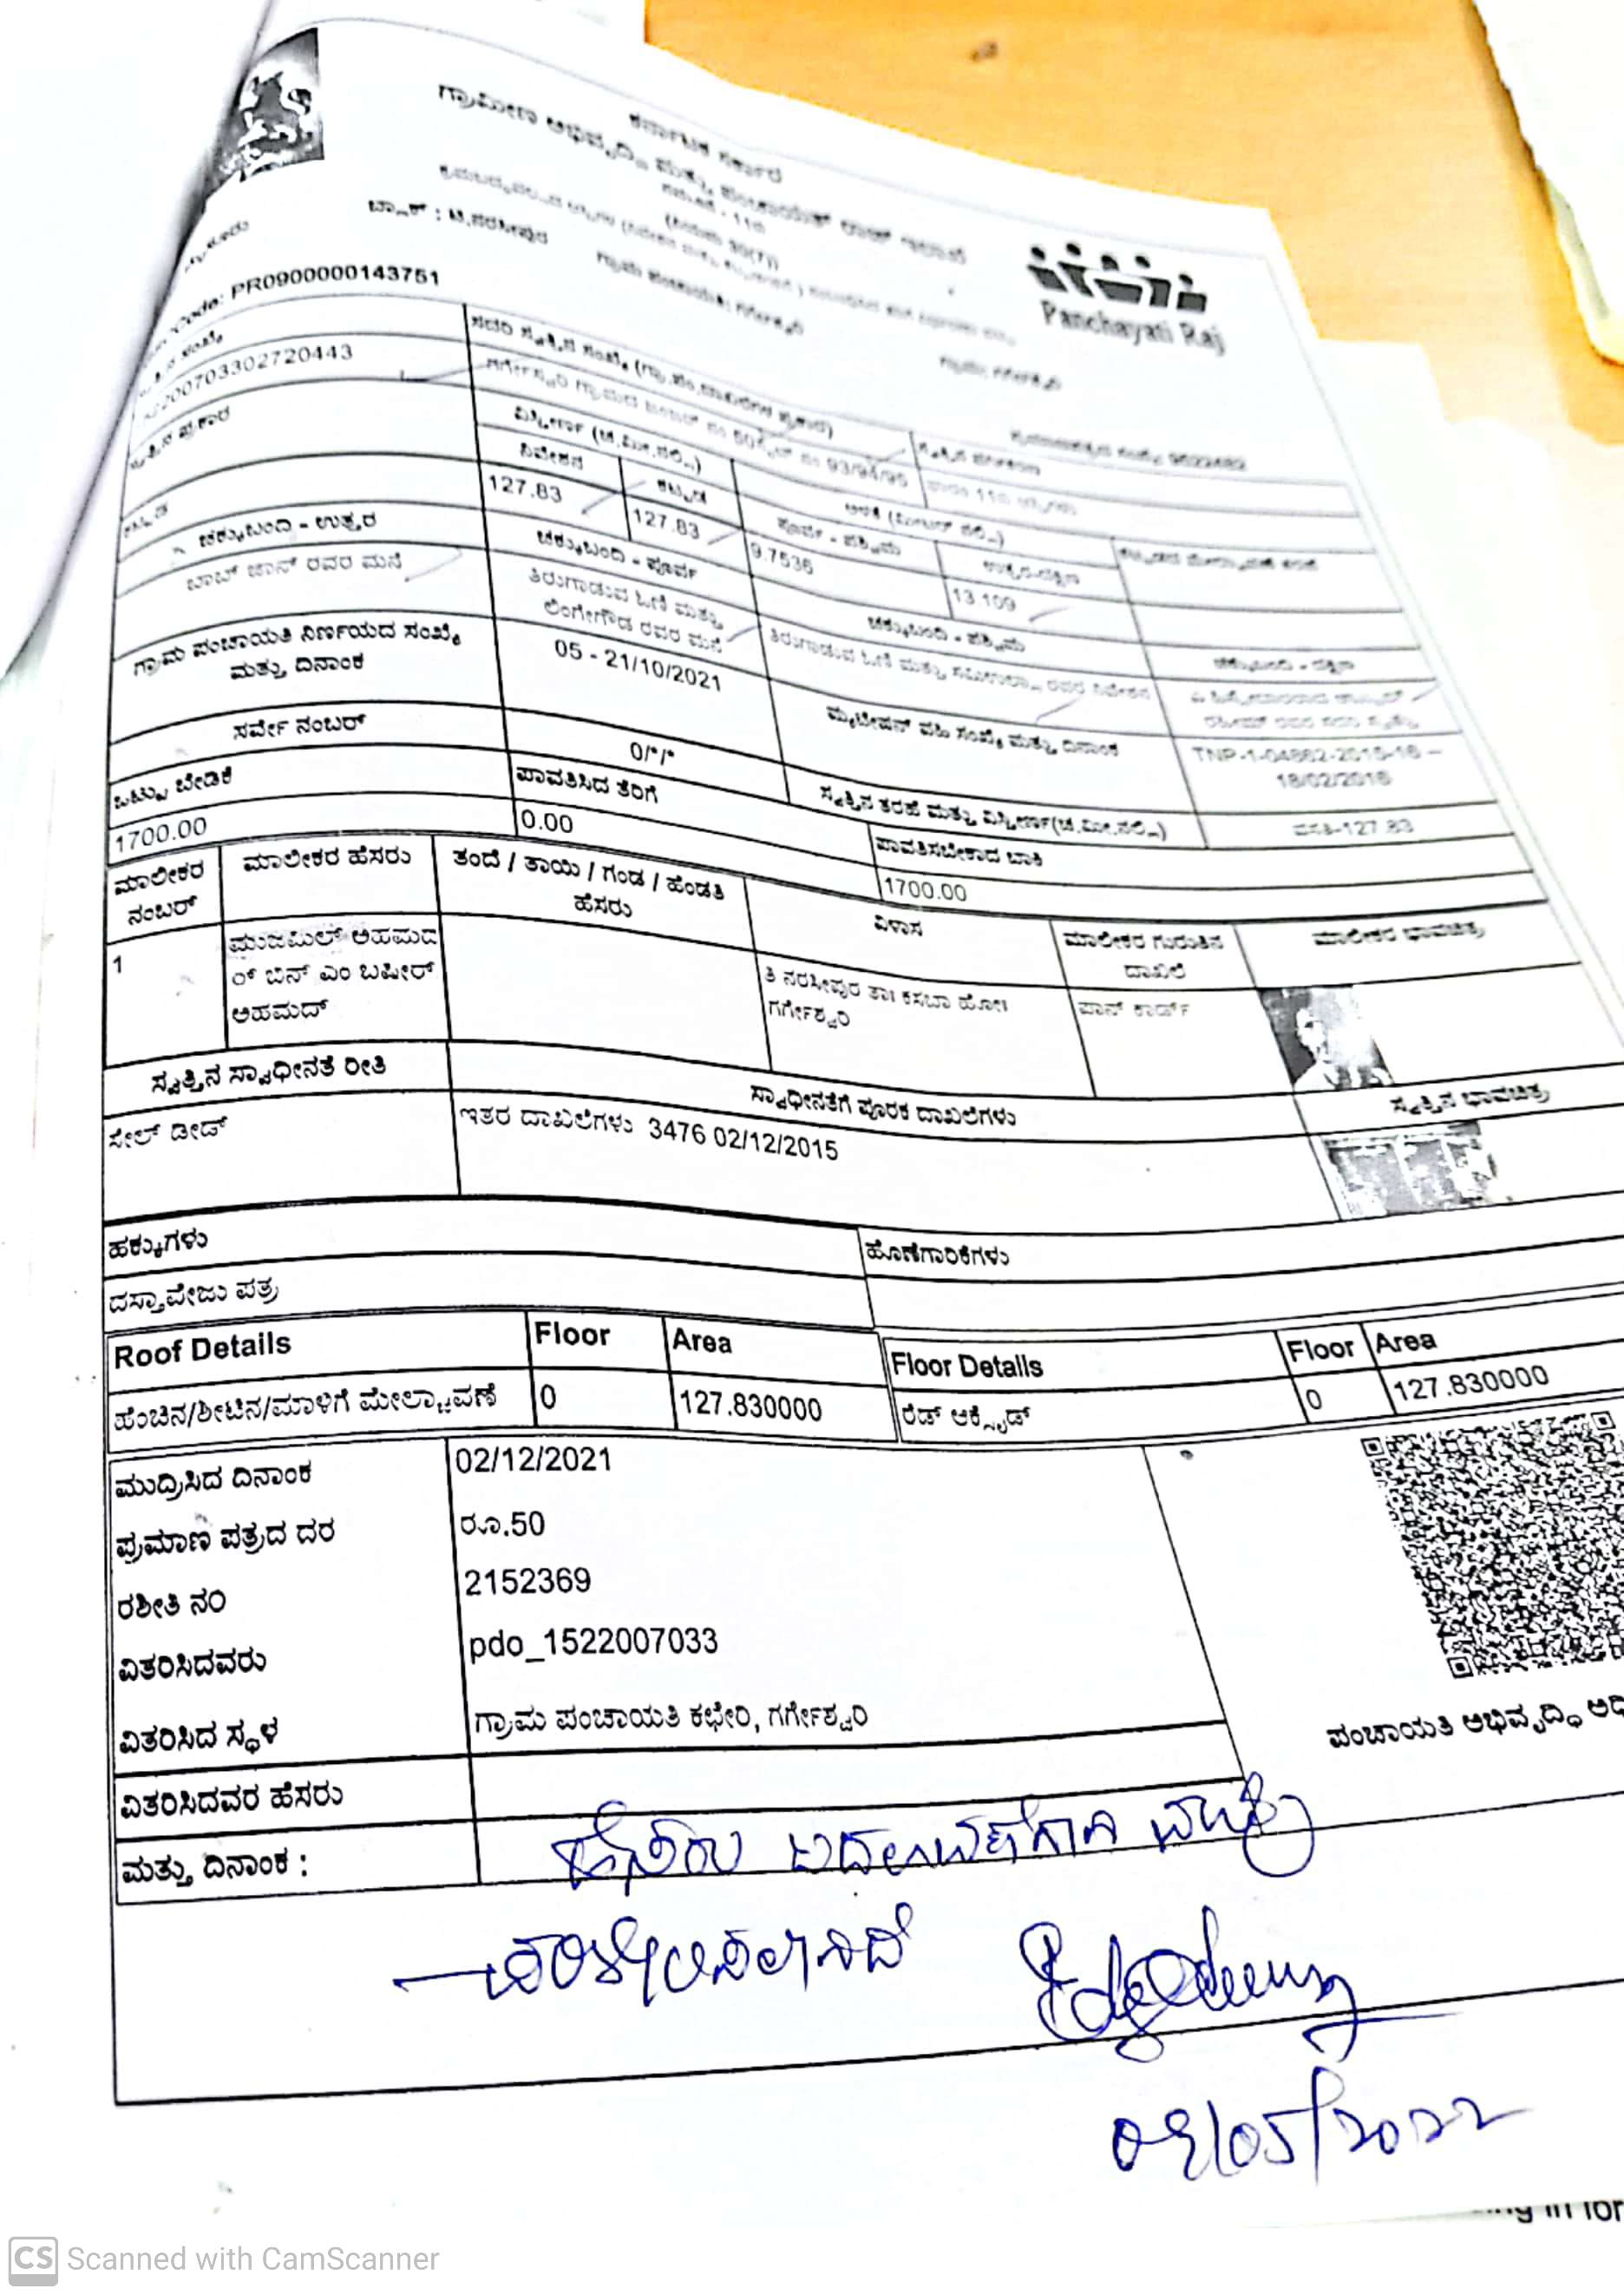 ಕರ್ನಾಟಕ ಸರ್ಕಾರ
ಗ್ರಾಮೀಣ ಅಭಿವೃದ್ಧಿ ಮತ್ತು ಪಂಚಾಯತ್ ರಾಜ್ ಇಲಾಖೆ
ನಮೂನೆ - 11ಬಿ
Panchayati Raj
ಬ್ಲಾಕ್ : ಟಿ.ನರಸೀಪುರ
ಗ್ರಾಮ ಪಂಚಾಯತಿ: ಗರ್ಗೇಶ್ವರಿ
ಗ್ರಾಮ: ಗರ್ಗೇಶ್ವರಿ
Code: PR0900000143751
ಸ್ವತ್ತಿನ ಸಂಖ್ಯೆ
200703302720443
ಸದರಿ ಸ್ವತ್ತಿನ ಸಂಖ್ಯೆ (ಗ್ರಾ.ಪಂ.ದಾಖಲೆಗಳ ಪ್ರಕಾರ)
ಸ್ವತ್ತಿನ ಪ್ರಕಾರ
ವಿಸ್ತೀರ್ಣ (ಚ.ಮೀ.ನಲ್ಲಿ)
ನಿವೇಶನ
ಕಟ್ಟಡ
ಅಳತೆ (ಮೀಟರ್ ನಲ್ಲಿ)
ಪೂರ್ವ - ಪಶ್ಚಿಮ
ಉತ್ತರ-ದಕ್ಷಿಣ
ಕಟ್ಟಡ
127.83
127.83
9.7536
13.109
ಚಕ್ಕುಬಂದಿ - ಉತ್ತರ
ಚಕ್ಕುಬಂದಿ - ಪೂರ್ವ
ಚಕ್ಕುಬಂದಿ - ಪಶ್ಚಿಮ
ಚಕ್ಕುಬಂದಿ - ದಕ್ಷಿಣ
ಬಾಬ್ ಜಾನ್ ರವರ ಮನೆ
ತಿರುಗಾಡುವ ಓಣಿ ಮತ್ತು
ಲಿಂಗೇಗೌಡ ರವರ ಮನೆ
ತಿರುಗಾಡುವ ಓಣಿ ಮತ್ತು ರವರ ನಿವೇಶನ
ಗ್ರಾಮ ಪಂಚಾಯತಿ ನಿರ್ಣಯದ ಸಂಖ್ಯೆ
ಮತ್ತು ದಿನಾಂಕ
05 - 21/10/2021
ಮ್ಯುಟೇಷನ್ ವಹಿ ಸಂಖ್ಯೆ ಮತ್ತು ದಿನಾಂಕ
TNP-1-04862-2015-16 –
18/02/2016
ಸರ್ವೇ ನಂಬರ್
0/*/*
ಸ್ವತ್ತಿನ ತರಹೆ ಮತ್ತು ವಿಸ್ತೀರ್ಣ(ಚ.ಮೀ.ನಲ್ಲಿ)
ವಸತಿ-127.83
ಒಟ್ಟು ಬೇಡಿಕೆ
ಪಾವತಿಸಿದ ತೆರಿಗೆ
ಪಾವತಿಸಬೇಕಾದ ಬಾಕಿ
1700.00
0.00
1700.00
ಮಾಲೀಕರ
ನಂಬರ್
ಮಾಲೀಕರ ಹೆಸರು
ತಂದೆ / ತಾಯಿ / ಗಂಡ / ಹೆಂಡತಿ
ಹೆಸರು
ವಿಳಾಸ
ಮಾಲೀಕರ ಗುರುತಿನ
ದಾಖಲೆ
ಮಾಲೀಕರ ಭಾವಚಿತ್ರ
1
ಮುಜಮಿಲ್ ಅಹಮದ
್ ಬಿನ್ ಎಂ ಬಷೀರ್
ಅಹಮದ್
ತಿ ನರಸೀಪುರ ತಾ। ಕಸಬಾ ಹೋ।
ಗರ್ಗೇಶ್ವರಿ
ಪಾನ್ ಕಾರ್ಡ್
ಸ್ವತ್ತಿನ ಸ್ವಾಧೀನತೆ ರೀತಿ
ಸ್ವಾಧೀನತೆಗೆ ಪೂರಕ ದಾಖಲೆಗಳು
ಸ್ವತ್ತಿನ ಭಾವಚಿತ್ರ
ಸೇಲ್ ಡೀಡ್
ಇತರ ದಾಖಲೆಗಳು 3476 02/12/2015
ಹಕ್ಕುಗಳು
ಹೊಣೆಗಾರಿಕೆಗಳು
ದಸ್ತಾವೇಜು ಪತ್ರ
Roof Details Floor Area
Floor Details Floor Area
ಹೆಂಚಿನ/ಶೀಟಿನ/ಮಾಳಿಗೆ ಮೇಲ್ಛಾವಣೆ 0 127.830000
ರೆಡ್ ಆಕ್ಸೈಡ್ 0 127.830000
ಮುದ್ರಿಸಿದ ದಿನಾಂಕ 02/12/2021
ಪ್ರಮಾಣ ಪತ್ರದ ದರ ರೂ.50
ರಶೀತಿ ನಂ 2152369
ವಿತರಿಸಿದವರು pdo_1522007033
ವಿತರಿಸಿದ ಸ್ಥಳ ಗ್ರಾಮ ಪಂಚಾಯತಿ ಕಛೇರಿ, ಗರ್ಗೇಶ್ವರಿ
ಪಂಚಾಯತಿ ಅಭಿವೃದ್ಧಿ ಅಧಿ
ವಿತರಿಸಿದವರ ಹೆಸರು
ಮತ್ತು ದಿನಾಂಕ :
ಹೆಸರು ಬದಲಾವಣೆಗಾಗಿ ಮಾತ್ರ
ಪರಿಶೀಲಿಸಲಾಗಿದೆ
09/05/2022
CS Scanned with CamScanner